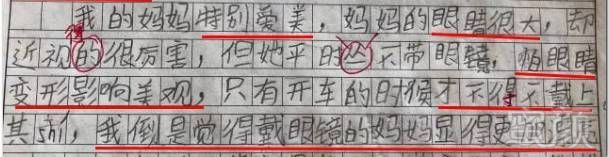 我的妈妈特别爱美，妈妈的眼睛很大，却
得
近视的很厉害，但她平时丛不带眼镜，怕眼睛
变形影响美观，只有开车的时候才不得不戴上
其shí，我倒是觉得戴眼镜的妈妈显得更